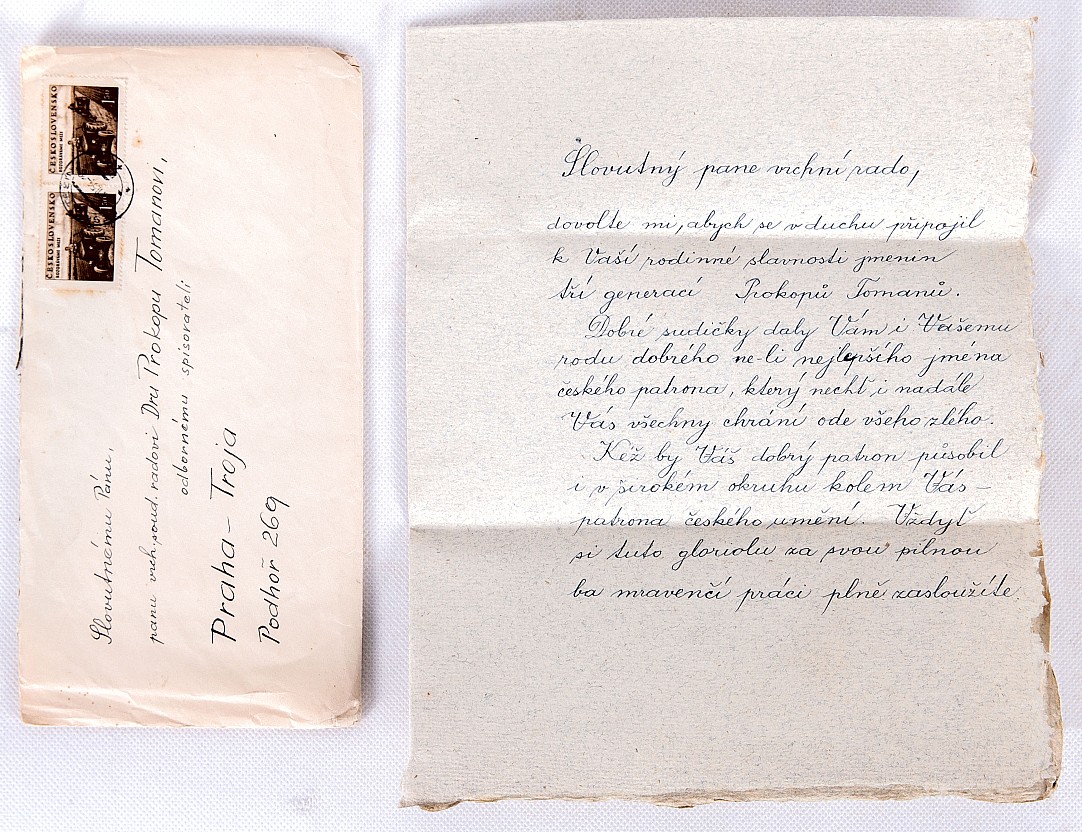 ČESKOSLOVENSKO
ROZORÁVÁME MEZE
1,50
ČESKOSLOVENSKO
ROZORÁVÁME MEZE
1,50
Slovutnému Pánu,
panu vrch. soud. radovi Dru Prokopu Tomanovi,
odbornému spisovateli
Praha – Troja
Podhoř 269
Slovutný pane vrchní rado,
dovolte mi, abych se v duchu připojil
k Vaší rodinné slavnosti jmenin
tří generací Prokopů Tomanů.
Dobré sudičky daly Vám i Vašemu
rodu dobrého ne-li nejlepšího jména
českého patrona, který nechť i nadále
Vás všechny chrání ode všeho zlého.
Kéž by Váš dobrý patron působil
i v širokém okruhu kolem Vás –
patrona českého umění. Vždyť
si tuto gloriolu za svou pilnou
ba mravenčí práci plně zasloužíte.